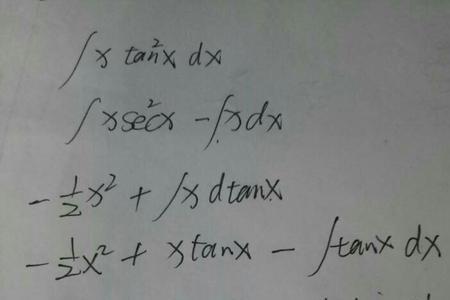 ∫x tan²x dx
∫xsec²x - ∫x dx
- ½x² + ∫x dtanx
- ½x² + xtanx - ∫tanx dx